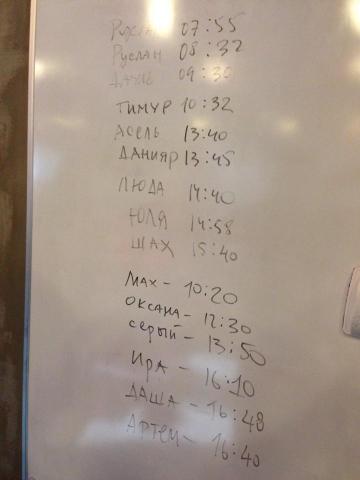 Руслан 07:55
Руслан 08:32
09:30
Тимур 10:32
Асель 13:40
Данияр 13:45
Люда 14:40
Юля 14:58
Шах 15:40
Мах - 10:20
Оксана - 12:30
Серый - 13:50
Ира - 16:10
Даша - 16:48
Артем - 16:40